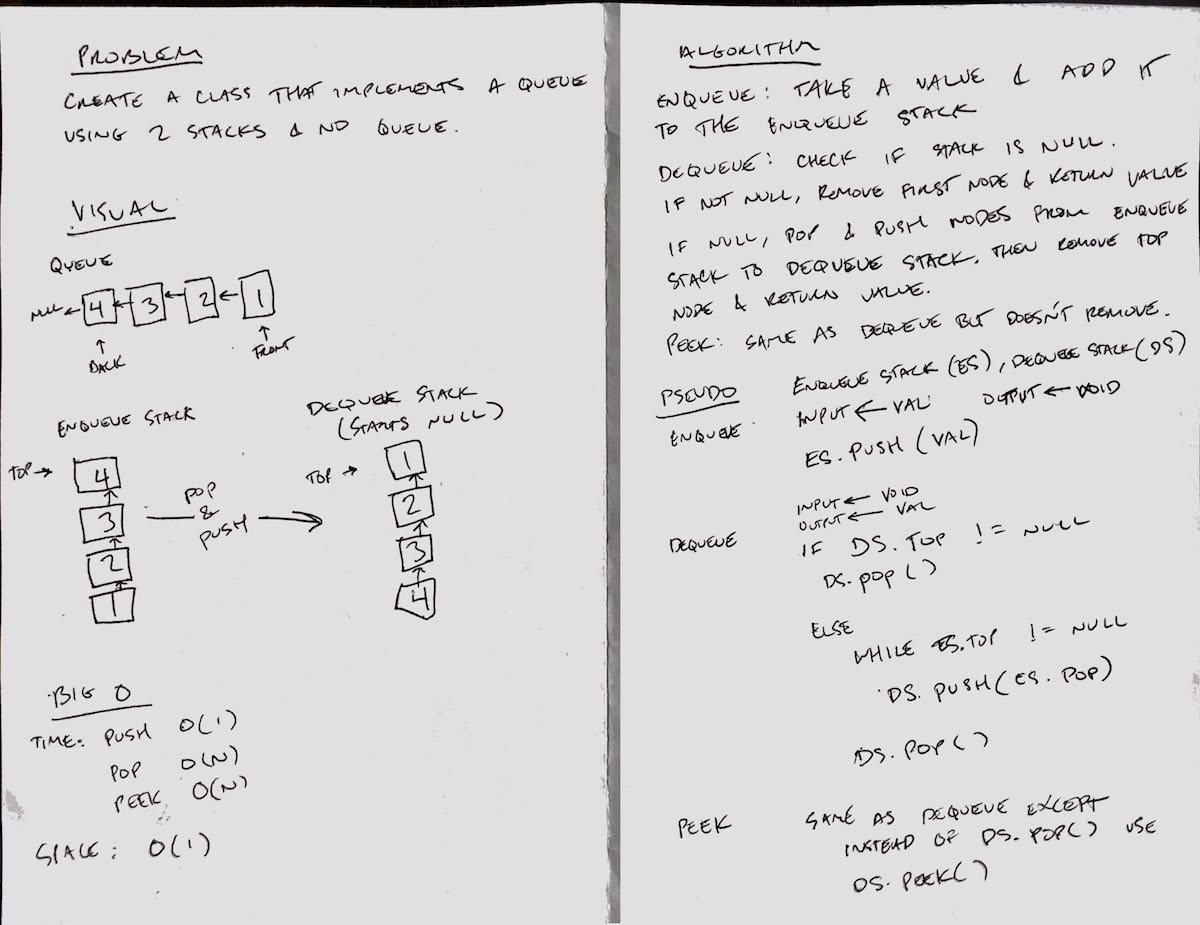 PROBLEM
CREATE A CLASS THAT IMPLEMENTS A QUEUE
USING 2 STACKS & NO QUEUE.
VISUAL
QUEUE
NULL ← 4 ← 3 ← 2 ← 1
↑ BACK
↑ FRONT
ENQUEUE STACK
TOP →
4
3
2
1
POP
&
PUSH
DEQUEUE STACK
(STARTS NULL)
TOP →
1
2
3
4
BIG O
TIME: PUSH O(1)
POP O(N)
PEEK O(N)
SPACE: O(1)
ALGORITHM
ENQUEUE: TAKE A VALUE & ADD IT
TO THE ENQUEUE STACK
DEQUEUE: CHECK IF STACK IS NULL.
IF NOT NULL, REMOVE FIRST NODE & RETURN VALUE
IF NULL, POP & PUSH NODES FROM ENQUEUE
STACK TO DEQUEUE STACK. THEN REMOVE TOP
NODE & RETURN VALUE.
PEEK: SAME AS DEQUEUE BUT DOESN'T REMOVE.
PSEUDO ENQUEUE STACK (ES), DEQUEUE STACK (DS)
ENQUEUE INPUT ← VAL OUTPUT ← VOID
ES.PUSH (VAL)
INPUT ← VOID
OUTPUT ← VAL
DEQUEUE IF DS.TOP != NULL
DS.POP()
ELSE
WHILE ES.TOP != NULL
DS.PUSH(ES.POP)
DS.POP()
PEEK SAME AS DEQUEUE EXCEPT
INSTEAD OF DS.POP() USE
DS.PEEK()